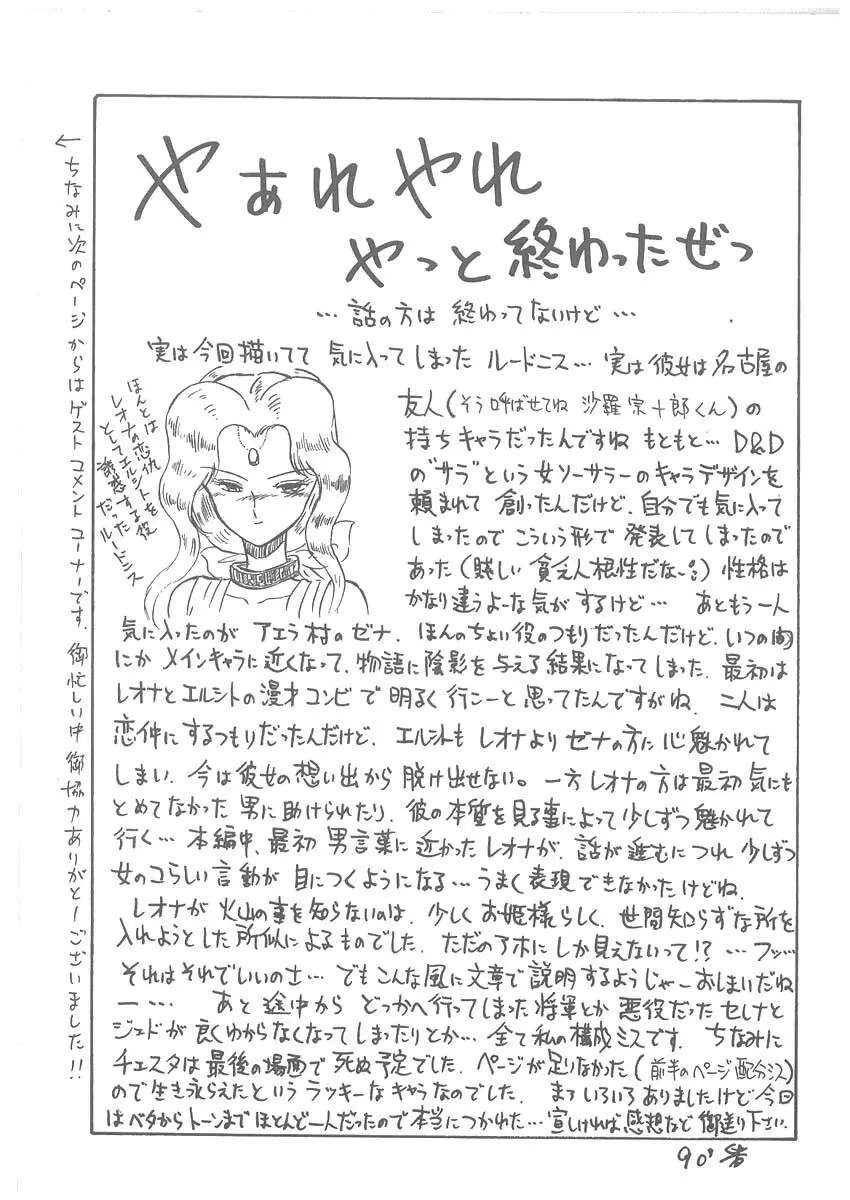 やぁれやれ
やっと終わったぜっ
…話の方は終わってないけど…
実は今回描いてて気に入ってしまったルードニス…実は彼女は名古屋の
友人(そう呼ばせてね沙羅宗十郎くん)の
持ちキャラだったんですねもともと…D&D
の"サラ"という女ソーサラーのキャラデザインを
頼まれて創ったんだけど、自分でも気に入って
しまったのでこういう形で発表してしまったので
あった(賎しい貧乏人根性だな〜)性格は
かなり違うよーな気がするけど… あともう一人
気に入ったのがアエラ村のゼナ、ほんのちょい役のつもりだったんだけど、いつの間
にかメインキャラに近くなって、物語に陰影を与える結果になってしまった、最初は
レオナとエルシトの漫才コンビで明るく行こーと思ってたんですがね、二人は
恋仲にするつもりだったんだけど、エルシトもレオナよりゼナの方に心魅かれて
しまい、今は彼女の想い出から脱け出せない。一方レオナの方は最初気にも
とめてなかった男に助けられたり、彼の本質を見る事によって少しずつ魅かれて
行く…本編中、最初男言葉に近かったレオナが、話が進むにつれ少しずつ
女のコらしい言動が目につくようになる…うまく表現できなかったけどね、
レオナが火山の事を知らないのは、少しくお姫様らしく、世間知らずな所を
入れようとした所似によるものでした、ただのアホにしか見えないって!?…フッ…
それはそれでいいのさ…でもこんな風に文章で説明するようじゃーおしまいだね
ー… あと途中からどっかへ行ってしまった将軍とか悪役だったセレナと
ジェドが良くわからなくなってしまったりとか…全て私の構成ミスです、ちなみに
チェスタは最後の場面で死ぬ予定でした、ページが足りなかった(前半のページ配分ミス)
ので生き永らえたというラッキーなキャラなのでした、まァいろいろありましたけど今回
はベタからトーンまでほとんど一人だったので本当につかれた…宜しければ感想など御送り下さい.
90'
ほんとは
レオナの恋仇
としてエルシトを
誘惑する役
だった
ルードニス
←ちなみに次のページからはゲストコメントコーナーです、御忙しい中御協力ありがとーございました!!